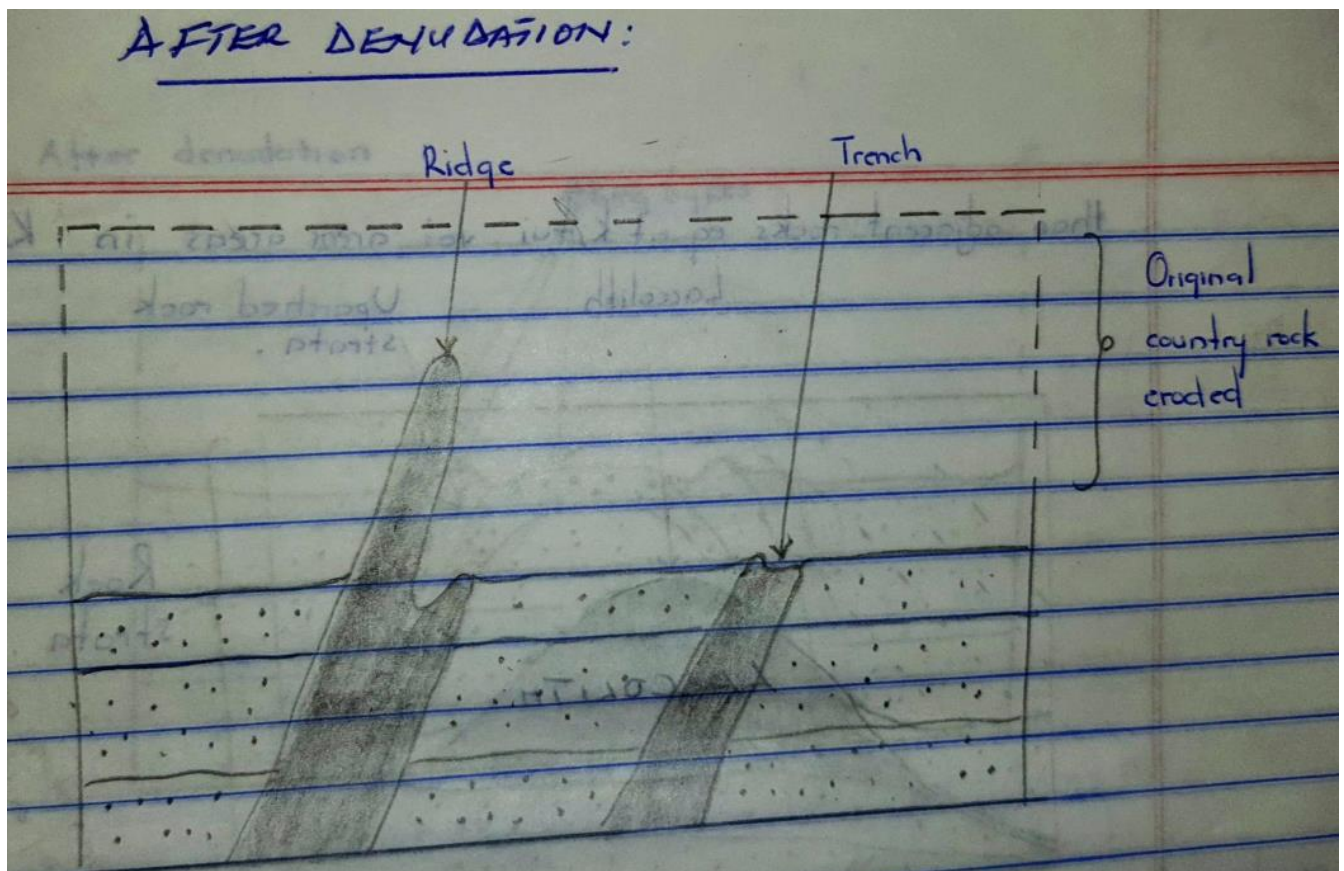 AFTER DENUDATION:
Ridge
Trench
Original
country rock
eroded